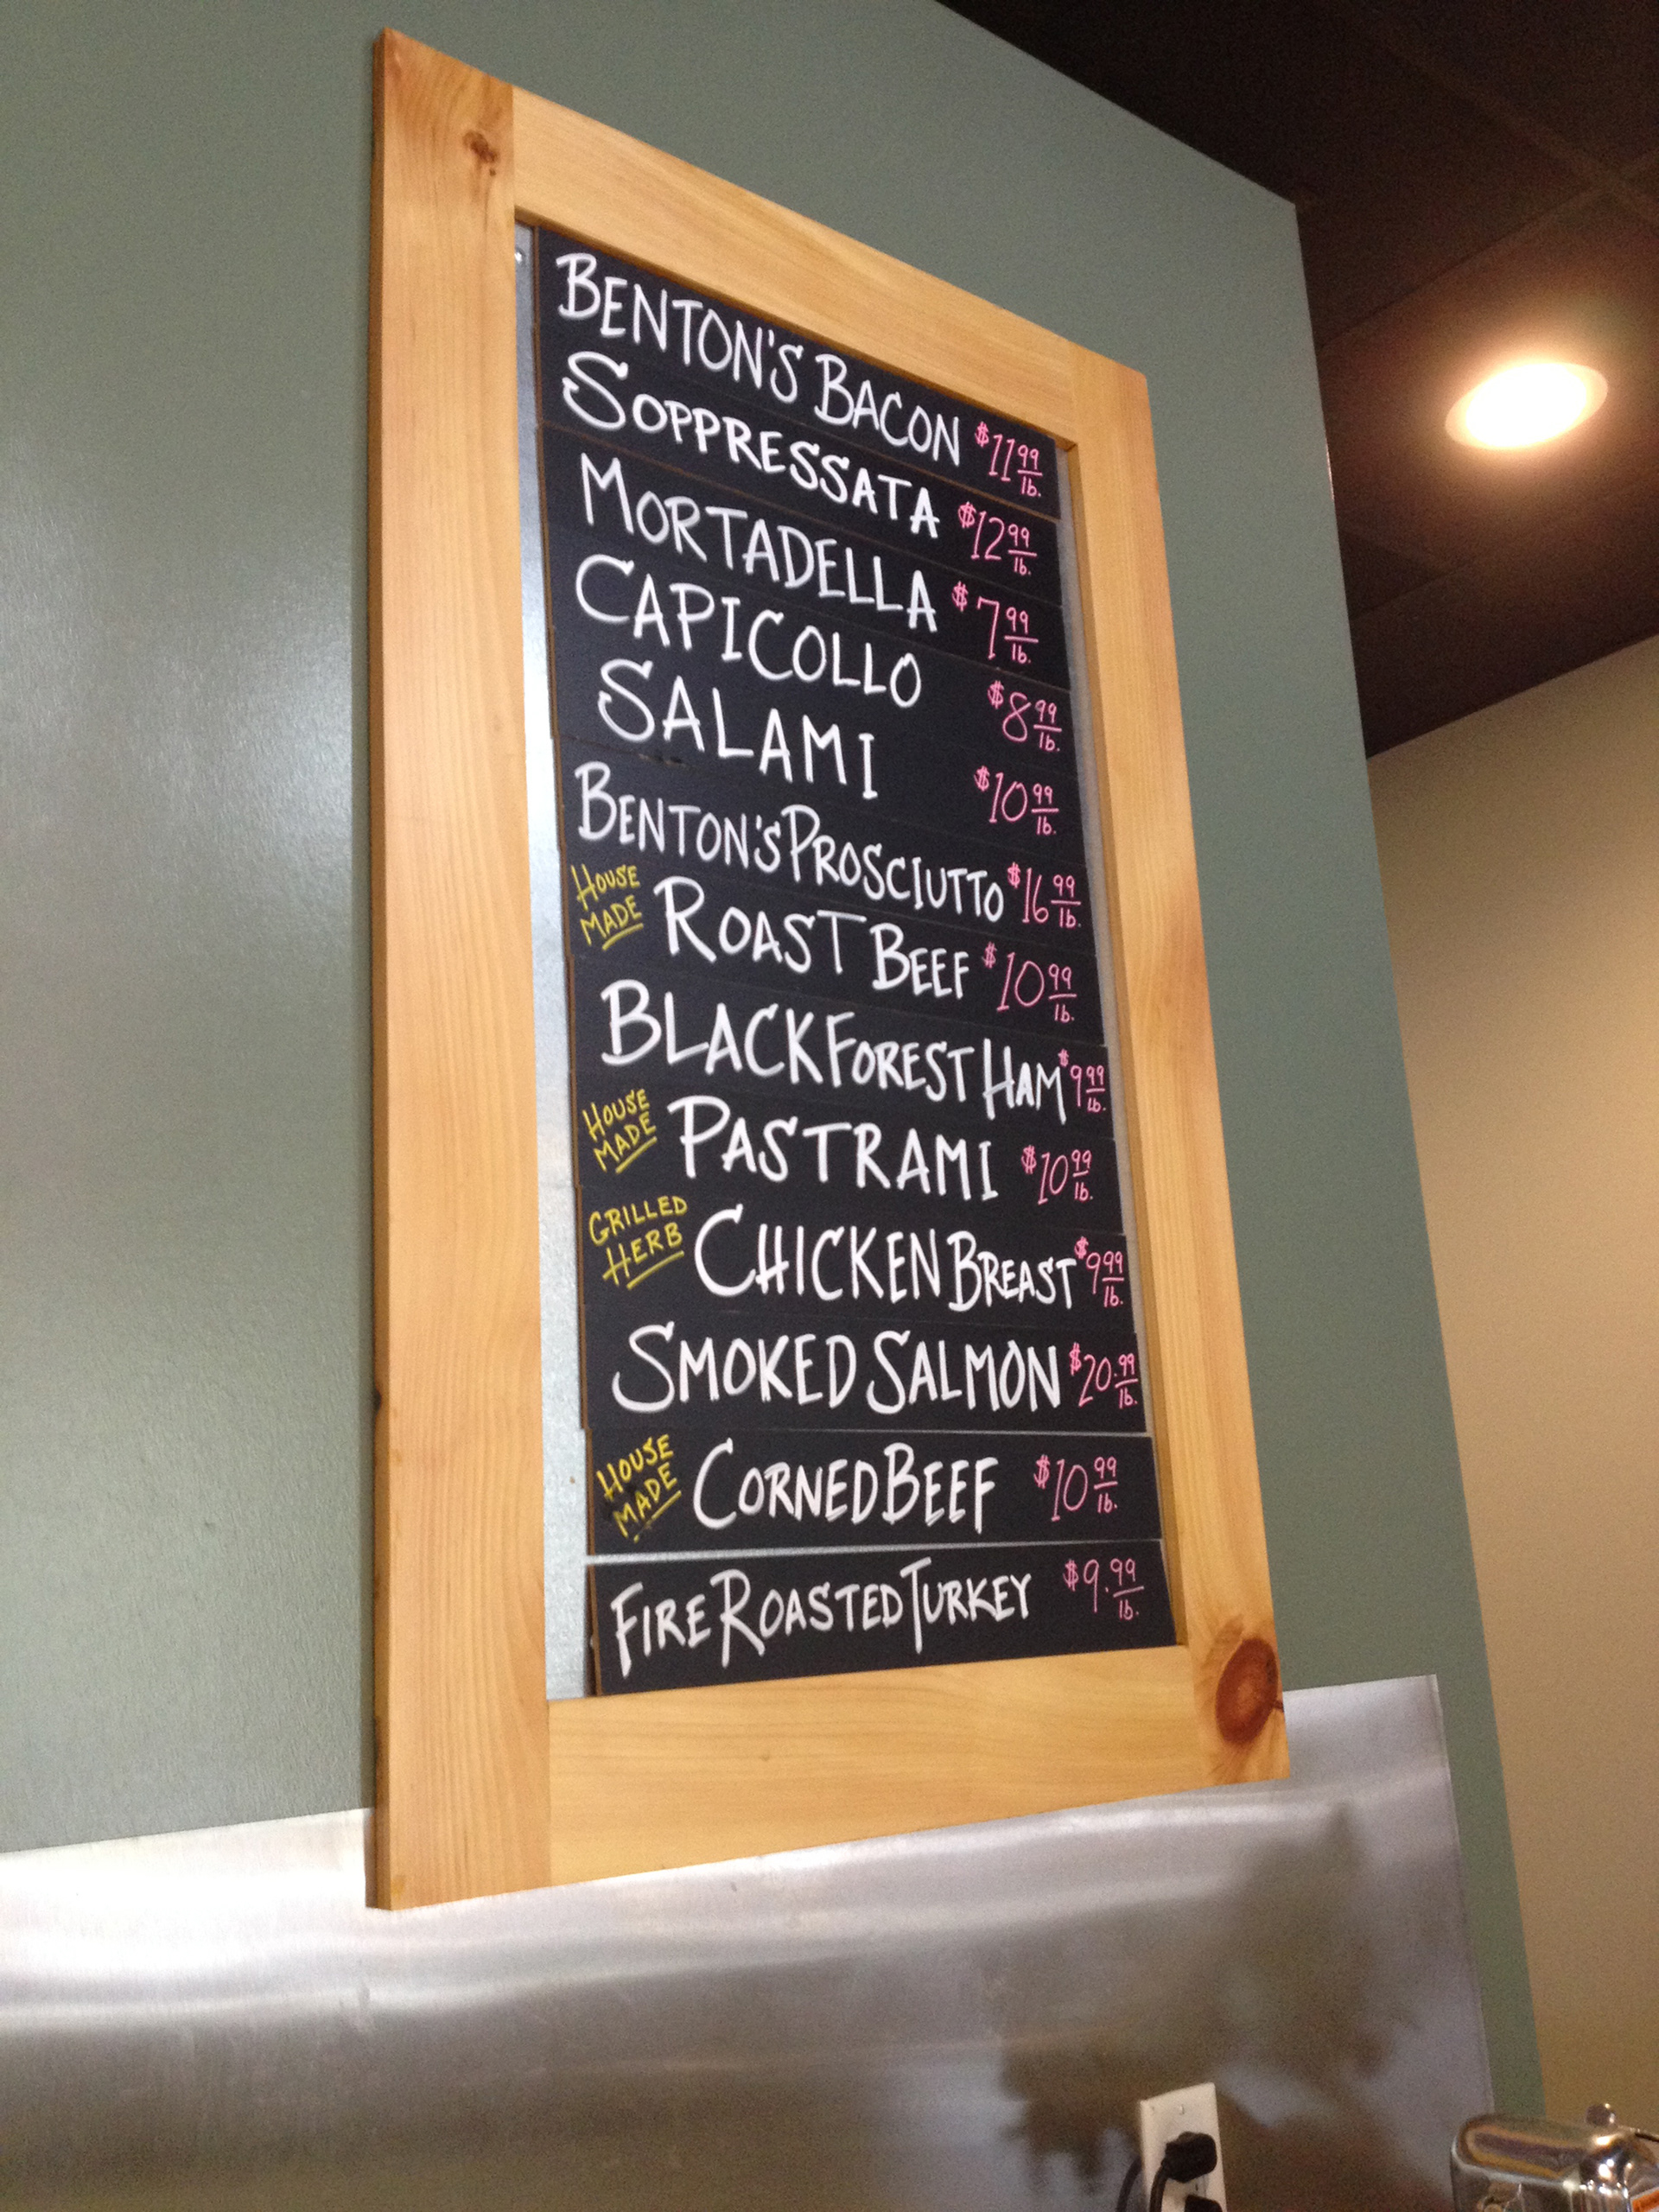 BENTON'S BACON $11 99/lb.
SOPPRESSATA $12 99/lb.
MORTADELLA $7 99/lb.
CAPICOLLO $8 99/lb.
SALAMI $10 99/lb.
BENTON'S PROSCIUTTO $16 99/lb.
HOUSE MADE ROAST BEEF $10 99/lb.
BLACK FOREST HAM $9 99/lb.
HOUSE MADE PASTRAMI $10 99/lb.
GRILLED HERB CHICKEN BREAST $9 99/lb.
SMOKED SALMON $20.99/lb.
HOUSE MADE CORNED BEEF $10 99/lb.
FIRE ROASTED TURKEY $9.99/lb.